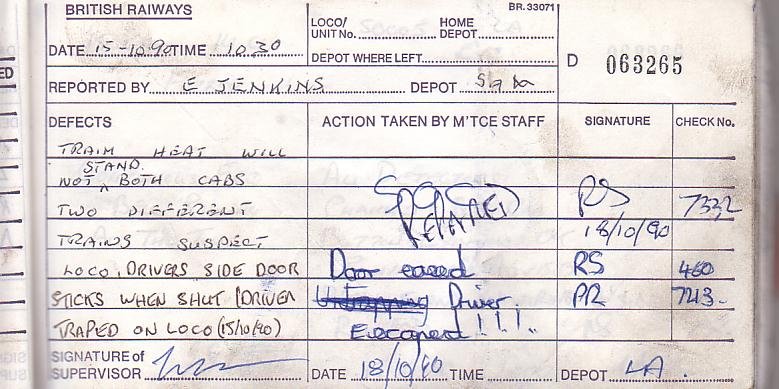 BRITISH RAILWAYS
BR. 33071
LOCO/ UNIT No. 50005 HOME DEPOT LA
DATE 15-10.90 TIME 10.30
DEPOT WHERE LEFT
D 063265
REPORTED BY E JENKINS DEPOT
DEFECTS ACTION TAKEN BY M'TCE STAFF SIGNATURE CHECK No.
TRAIM HEAT WILL
STAND.
NOT BOTH CABS
TWO DIFFERENT REPAIRED RS 7332
TRAINS SUSPECT 18/10/90
LOCO, DRIVERS SIDE DOOR Door eased RS 460
STICKS WHEN SHUT (DRIVER Driver PR 743.
TRAPED ON LOCO (15/10/90) Escaped !!!..
SIGNATURE of
SUPERVISOR DATE 18/10/90 TIME DEPOT LA.